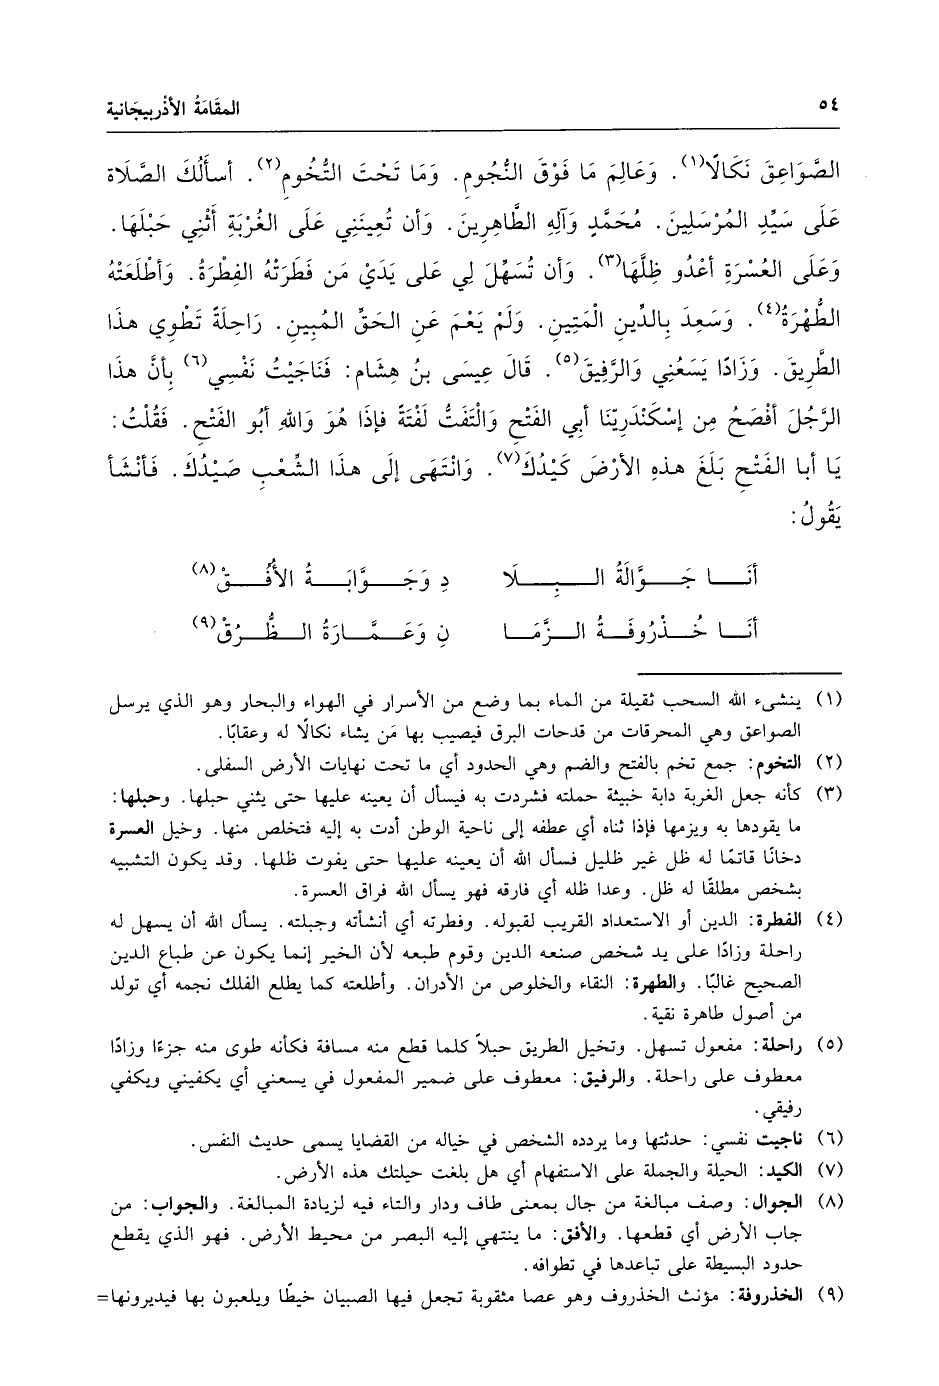 ٥٤ المقَامَةُ الأذْربيجَانية
الصَّوَاعِقَ نَكَالًا(١). وَعَالِمَ مَا فَوْقَ النُّجُومِ. وَمَا تَحْتَ التُّخُومِ(٢). أسأَلُكَ الصَّلَاة
عَلَى سَيِّدِ المُرْسَلِينَ. مُحَمَّدٍ وَآلِهِ الطَّاهِرِينَ. وَأن تُعِينَنِي عَلَى الغُرْبَةِ أَثْنِي حَبْلَهَا.
وَعَلَى العُسْرَةِ أعْدُو ظِلَّهَا(٣). وَأن تُسَهِّلَ لِي عَلى يَدَيْ مَن فَطَرَتْهُ الفِطْرَةُ. وَأطْلَعَتْهُ
الطُّهْرَةُ(٤). وَسَعِدَ بِالدِّينِ الْمَتِينِ. وَلَمْ يَعْمَ عَنِ الحَقِّ المُبِينِ. رَاحِلَةً تَطْوِي هذَا
الطَّرِيقَ. وَزَادًا يَسَعُنِي وَالرَّفِيقَ(٥). قَالَ عِيسَى بنُ هِشَام: فَنَاجَيْتُ نَفْسِي(٦) بِأنَّ هذَا
الرَّجُلَ أفْصَحُ مِن إسْكَنْدَرِيِّنَا أبي الفَتْحِ وَالْتَفَتُّ لَفْتَةً فإذَا هُوَ وَاللهِ أبُو الفَتْحِ. فَقُلْتُ:
يَا أبا الفَتْحِ بَلَغَ هذهِ الأرْضَ كَيْدُكَ(٧). وَانْتَهَى إلَى هذَا الشِّعْبِ صَيْدُكَ. فَأنْشَأ
يَقُولُ:
أنَـــا جَـــوَّالَةُ الـــبِـــلَا دِ وَجَـــوَّابَـــةُ الأُفُـــقْ(٨)
أنَـــا خُـــذْرُوفَـــةُ الـــزَّمَـــا نِ وَعَـــمَّـــارَةُ الـــطُّـــرُقْ(٩)
(١) ينشىء الله السحب ثقيلة من الماء بما وضع من الأسرار في الهواء والبحار وهو الذي يرسل
الصواعق وهي المحرقات من قدحات البرق فيصيب بها مَن يشاء نكالًا له وعقابًا.
(٢) التخوم: جمع تخم بالفتح والضم وهي الحدود أي ما تحت نهايات الأرض السفلى.
(٣) كأنه جعل الغربة دابة خبيثة حملته فشردت به فيسأل أن يعينه عليها حتى يثني حبلها. وحبلها:
ما يقودها به ويزمها فإذا ثناه أي عطفه إلى ناحية الوطن أدت به إليه فتخلص منها. وخيل العسرة
دخانًا قاتمًا له ظل غير ظليل فسأل الله أن يعينه عليها حتى يفوت ظلها. وقد يكون التشبيه
بشخص مطلقًا له ظل. وعدا ظله أي فارقه فهو يسأل الله فراق العسرة.
(٤) الفطرة: الدين أو الاستعداد القريب لقبوله. وفطرته أي أنشأته وجبلته. يسأل الله أن يسهل له
راحلة وزادًا على يد شخص صنعه الدين وقوم طبعه لأن الخير إنما يكون عن طباع الدين
الصحيح غالبًا. والطهرة: النقاء والخلوص من الأدران. وأطلعته كما يطلع الفلك نجمه أي تولد
من أصول طاهرة نقية.
(٥) راحلة: مفعول تسهل. وتخيل الطريق حبلاً كلما قطع منه مسافة فكأنه طوى منه جزءًا وزادًا
معطوف على راحلة. والرفيق: معطوف على ضمير المفعول في يسعني أي يكفيني ويكفي
رفيقي.
(٦) ناجيت نفسي: حدثتها وما يردده الشخص في خياله من القضايا يسمى حديث النفس.
(٧) الكيد: الحيلة والجملة على الاستفهام أي هل بلغت حيلتك هذه الأرض.
(٨) الجوال: وصف مبالغة من جال بمعنى طاف ودار والتاء فيه لزيادة المبالغة. والجواب: من
جاب الأرض أي قطعها. والأفق: ما ينتهي إليه البصر من محيط الأرض. فهو الذي يقطع
حدود البسيطة على تباعدها في تطوافه.
(٩) الخذروفة: مؤنث الخذروف وهو عصا مثقوبة تجعل فيها الصبيان خيطًا ويلعبون بها فيديرونها=